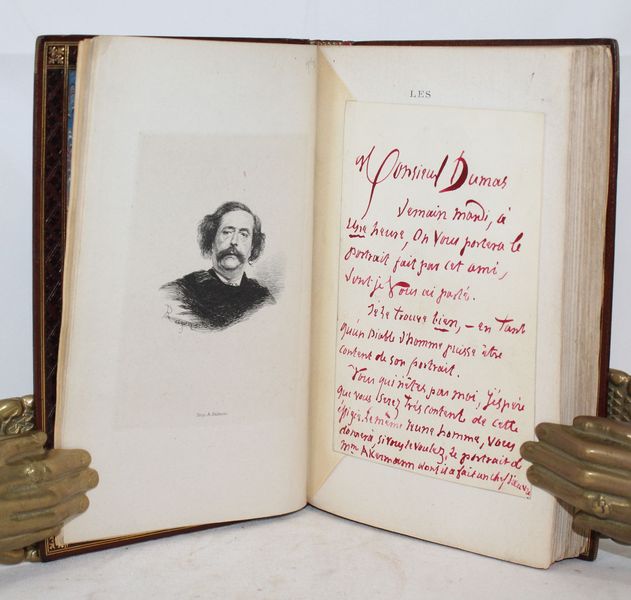 LES
Monsieur Dumas
demain mardi, à
Une heure, On Vous portera le
portrait fait par cet ami,
dont je Vous ai parlé.
Je le trouve bien, – en tant
qu'un Diable d'homme puisse être
content de son portrait.
Vous qui n'êtes pas moi, j'espère
que vous serez très content de cette
effigie. Le même jeune homme, vous
donnera, si vous le voulez, le portrait de
Mme Akermann dont il a fait un chef d'œuvre